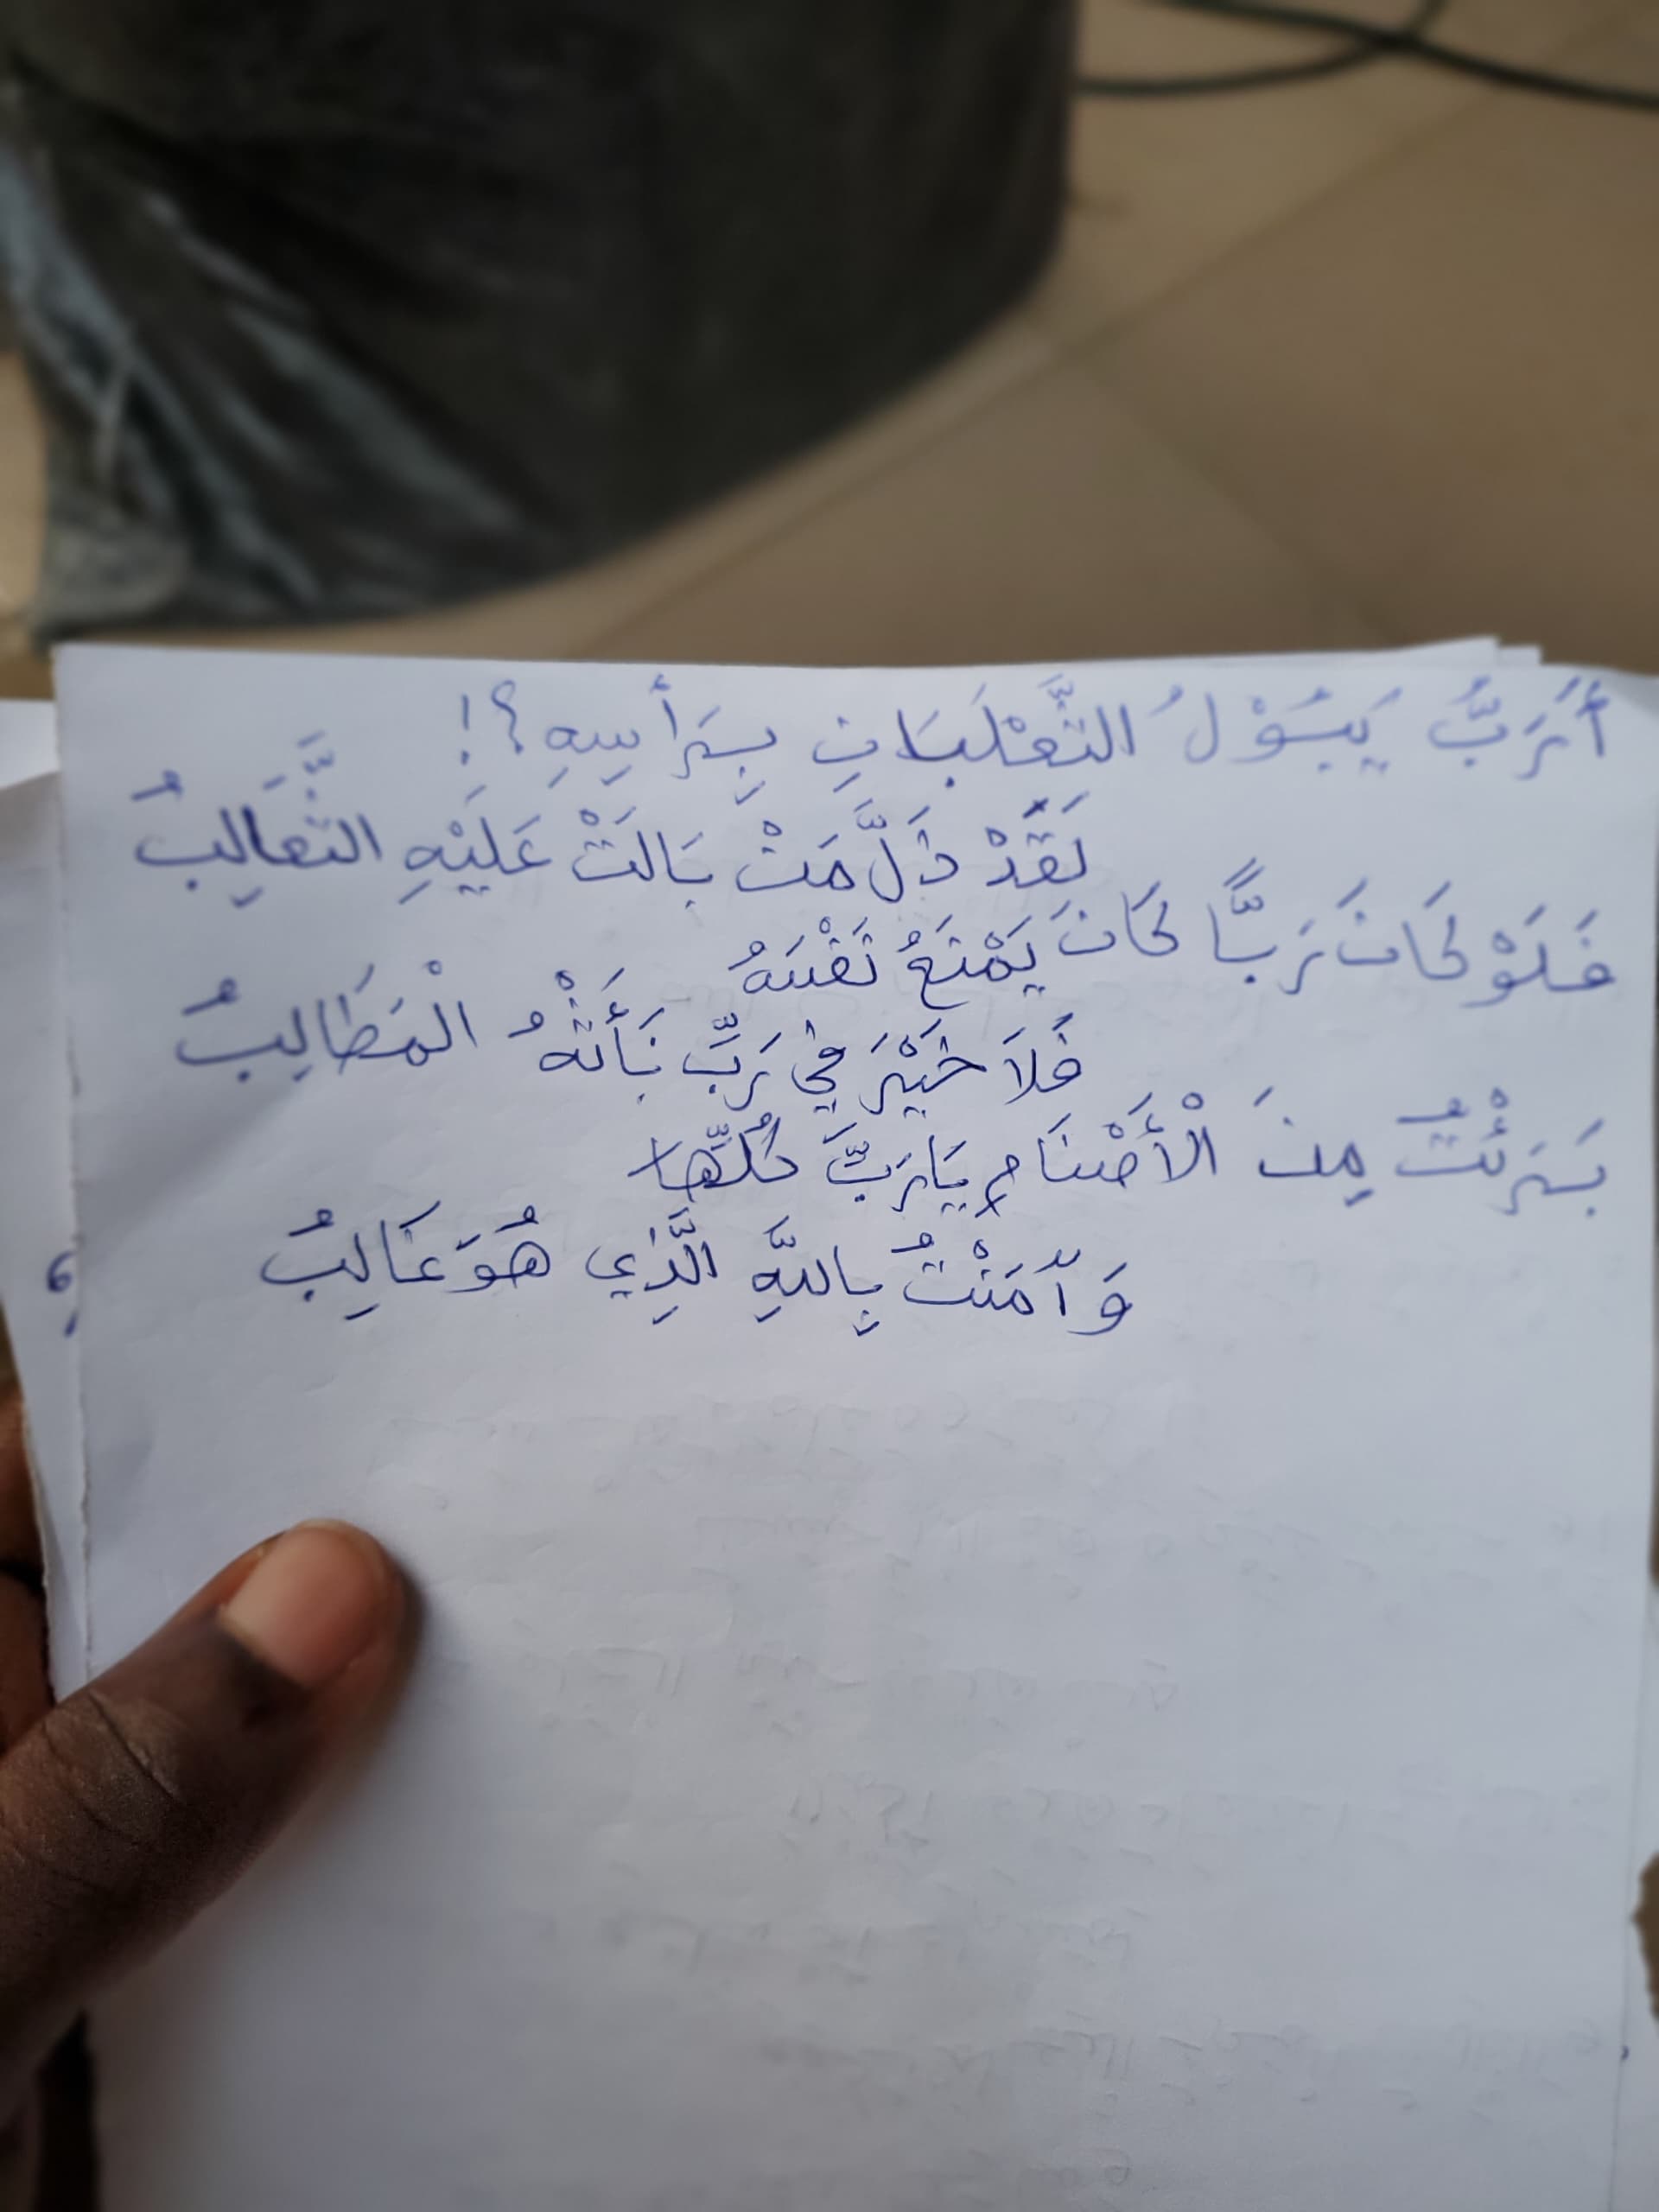 أَرَبٌّ يَبُوْلُ الثَّعْلَبَانِ بِرَأْسِهِ؟!
لَقَدْ ذَلَّ مَنْ بَالَتْ عَلَيْهِ الثَّعَالِبُ
فَلَوْ كَانَ رَبًّا كَانَ يَمْنَعُ نَفْسَهُ
فَلَا خَيْرَ فِي رَبٍّ نَأَتْهُ الْمَطَالِبُ
بَرِئْتُ مِنَ الْأَصْنَامِ يَارَبِّ كُلِّهَا
وَآمَنْتُ بِاللَّهِ الَّذِي هُوَ غَالِبُ